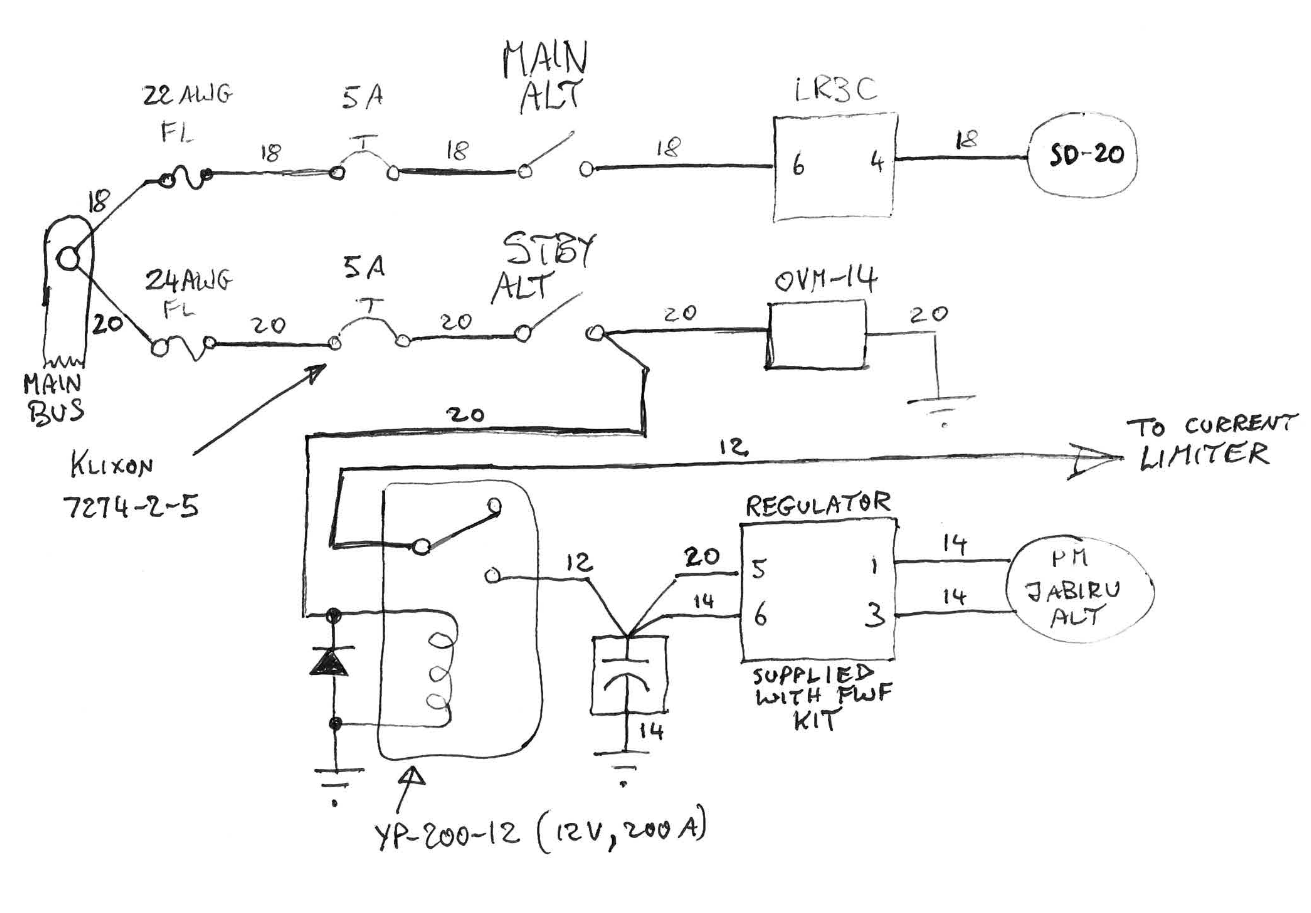 MAIN
ALT
22 AWG
FL
5A
LR3C
18
18
18
18
18
6
4
SD-20
STBY
ALT
24AWG
FL
5A
OVM-14
20
20
20
20
20
MAIN
BUS
20
KLIXON
7274-2-5
12
TO CURRENT
LIMITER
REGULATOR
12
20
14
5
6
1
3
14
14
PM
JABIRU
ALT
SUPPLIED
WITH FWF
KIT
14
YP-200-12 (12V, 200A)